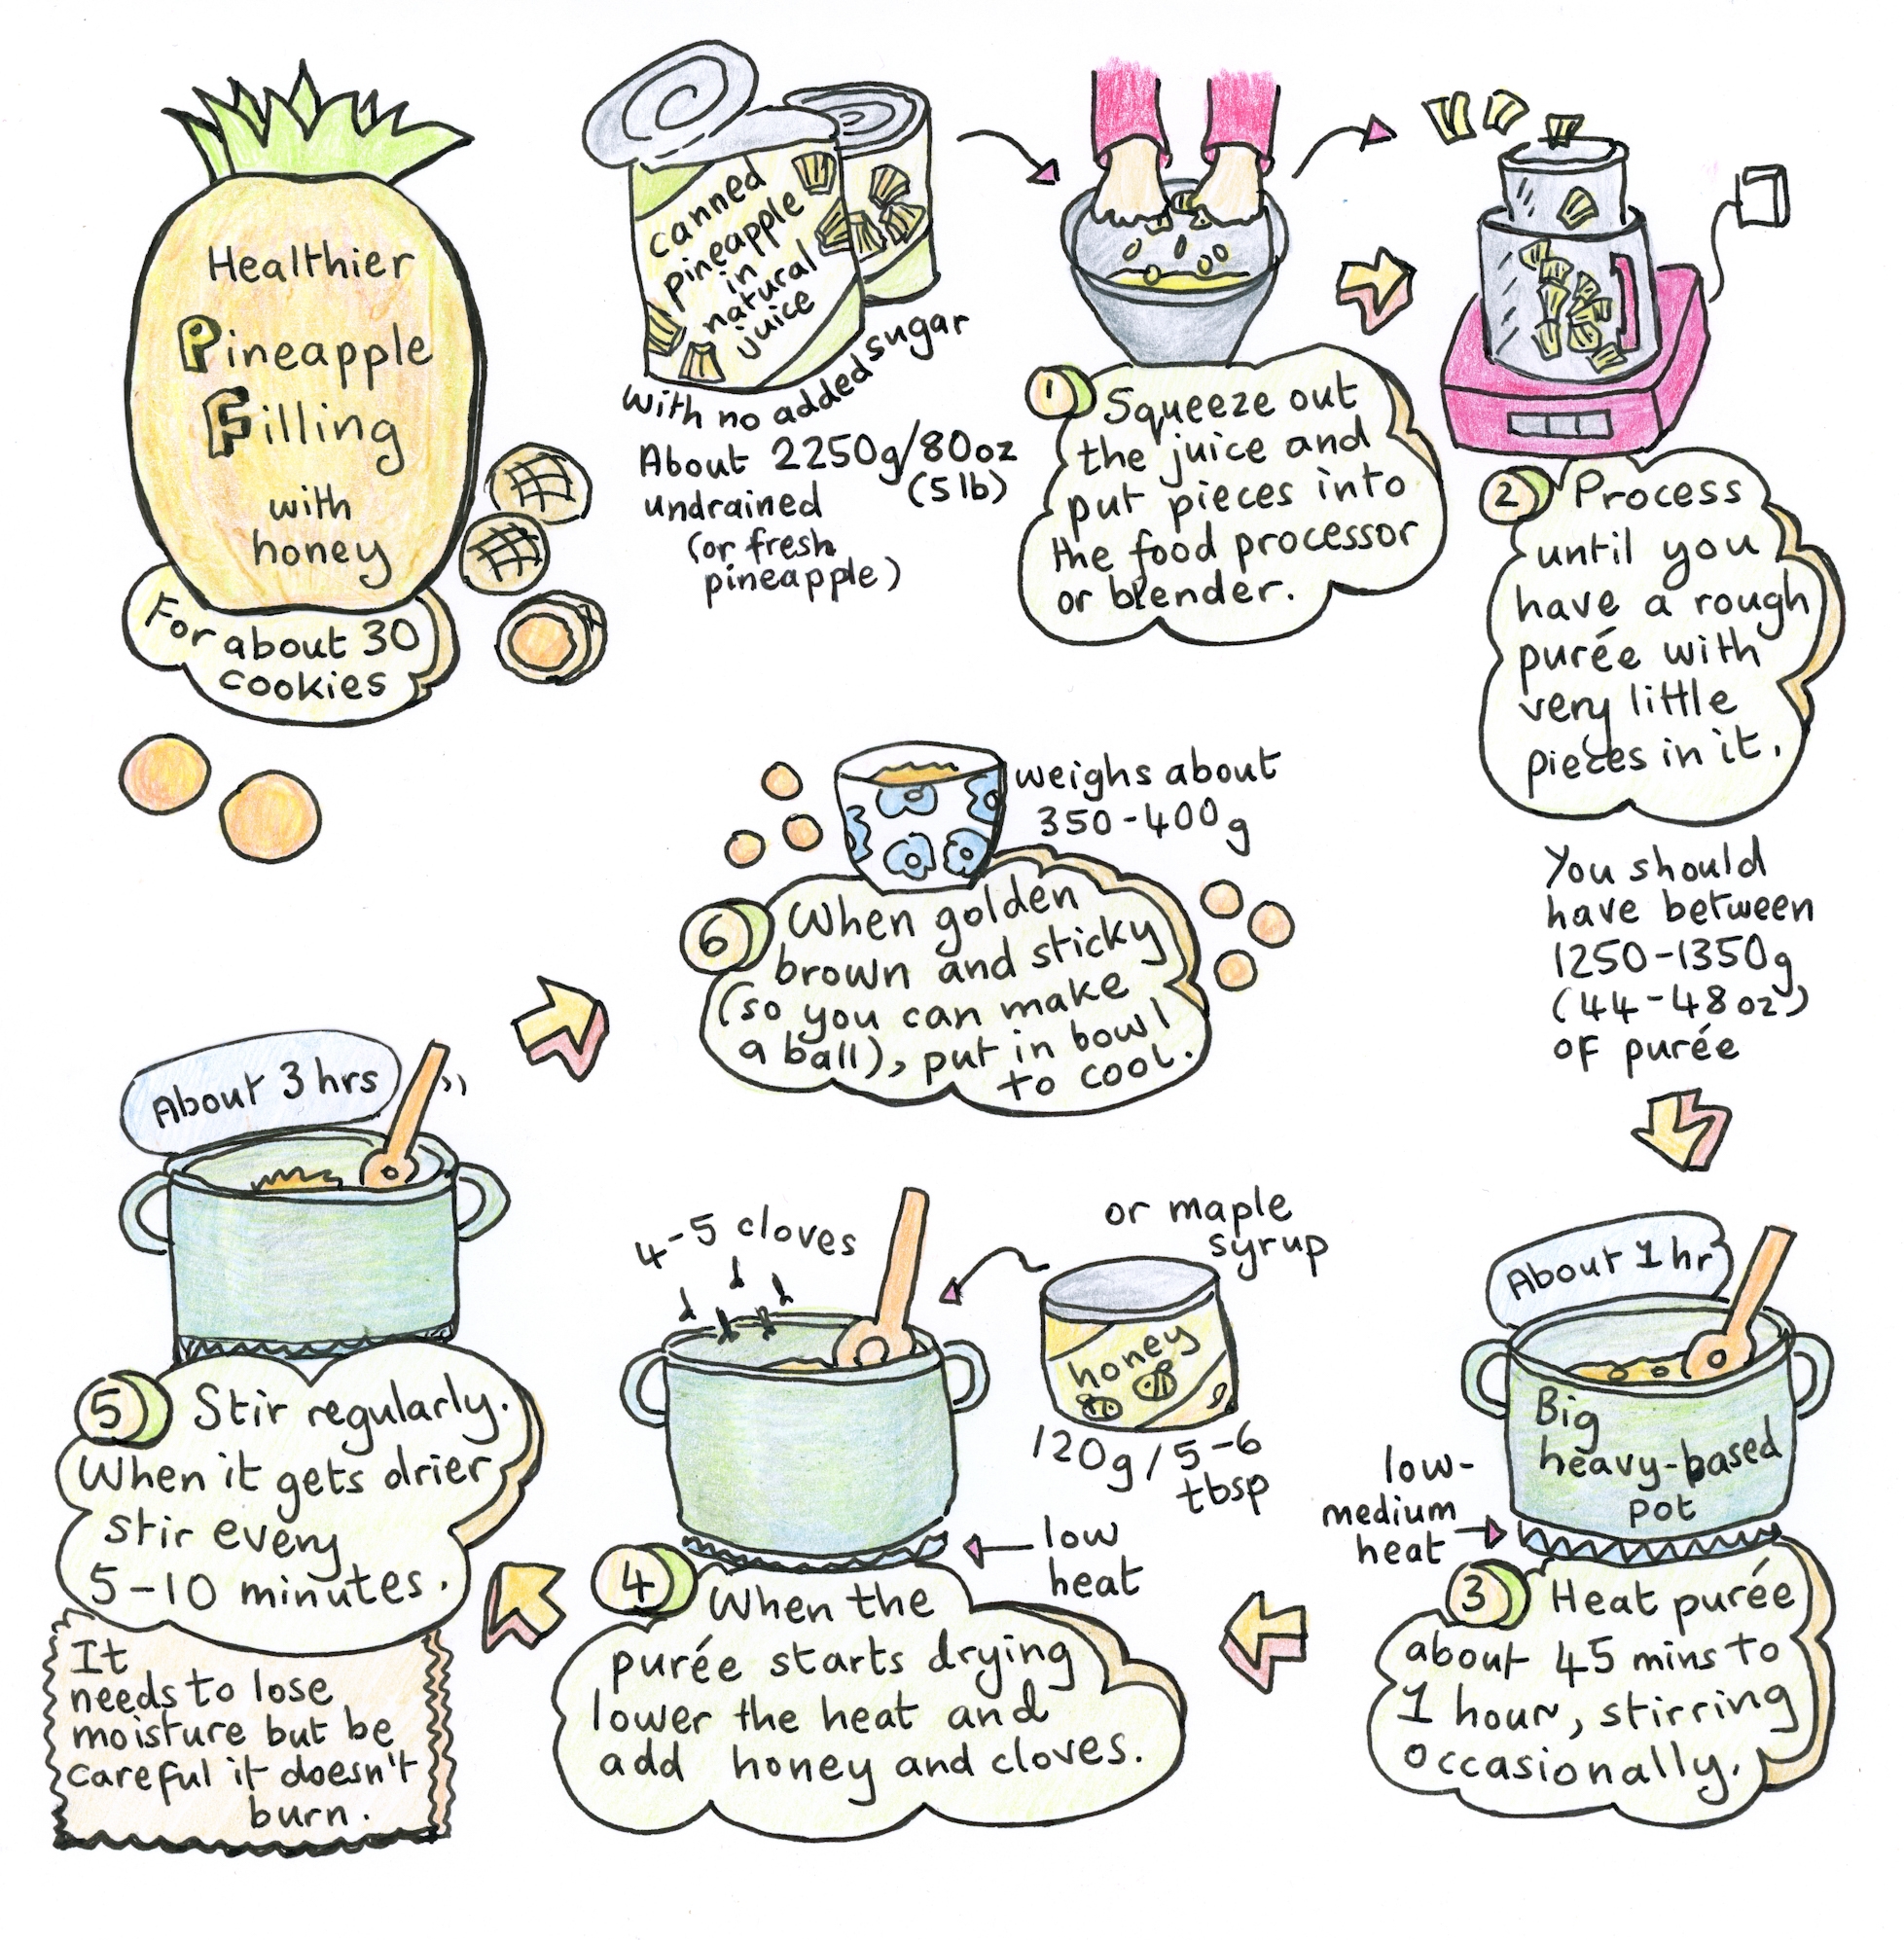 Healthier
Pineapple
Filling
with
honey
For about 30
cookies
canned
pineapple
in
natural
juice
with no added sugar
About 2250g/80oz
(5lb)
undrained
(or fresh
pineapple)
1 Squeeze out
the juice and
put pieces into
the food processor
or blender.
2 Process
until you
have a rough
purée with
very little
pieces in it.
You should
have between
1250-1350g
(44-48oz)
of purée
About 1 hr
Big
heavy-based
pot
low-
medium
heat
3 Heat purée
about 45 mins to
1 hour, stirring
occasionally.
4-5 cloves
or maple
syrup
honey
120g/5-6
tbsp
low
heat
4 When the
purée starts drying
lower the heat and
add honey and cloves.
About 3 hrs
5 Stir regularly.
When it gets drier
stir every
5-10 minutes.
It
needs to lose
moisture but be
careful it doesn't
burn.
weighs about
350-400g
6 When golden
brown and sticky
(so you can make
a ball), put in bowl
to cool.